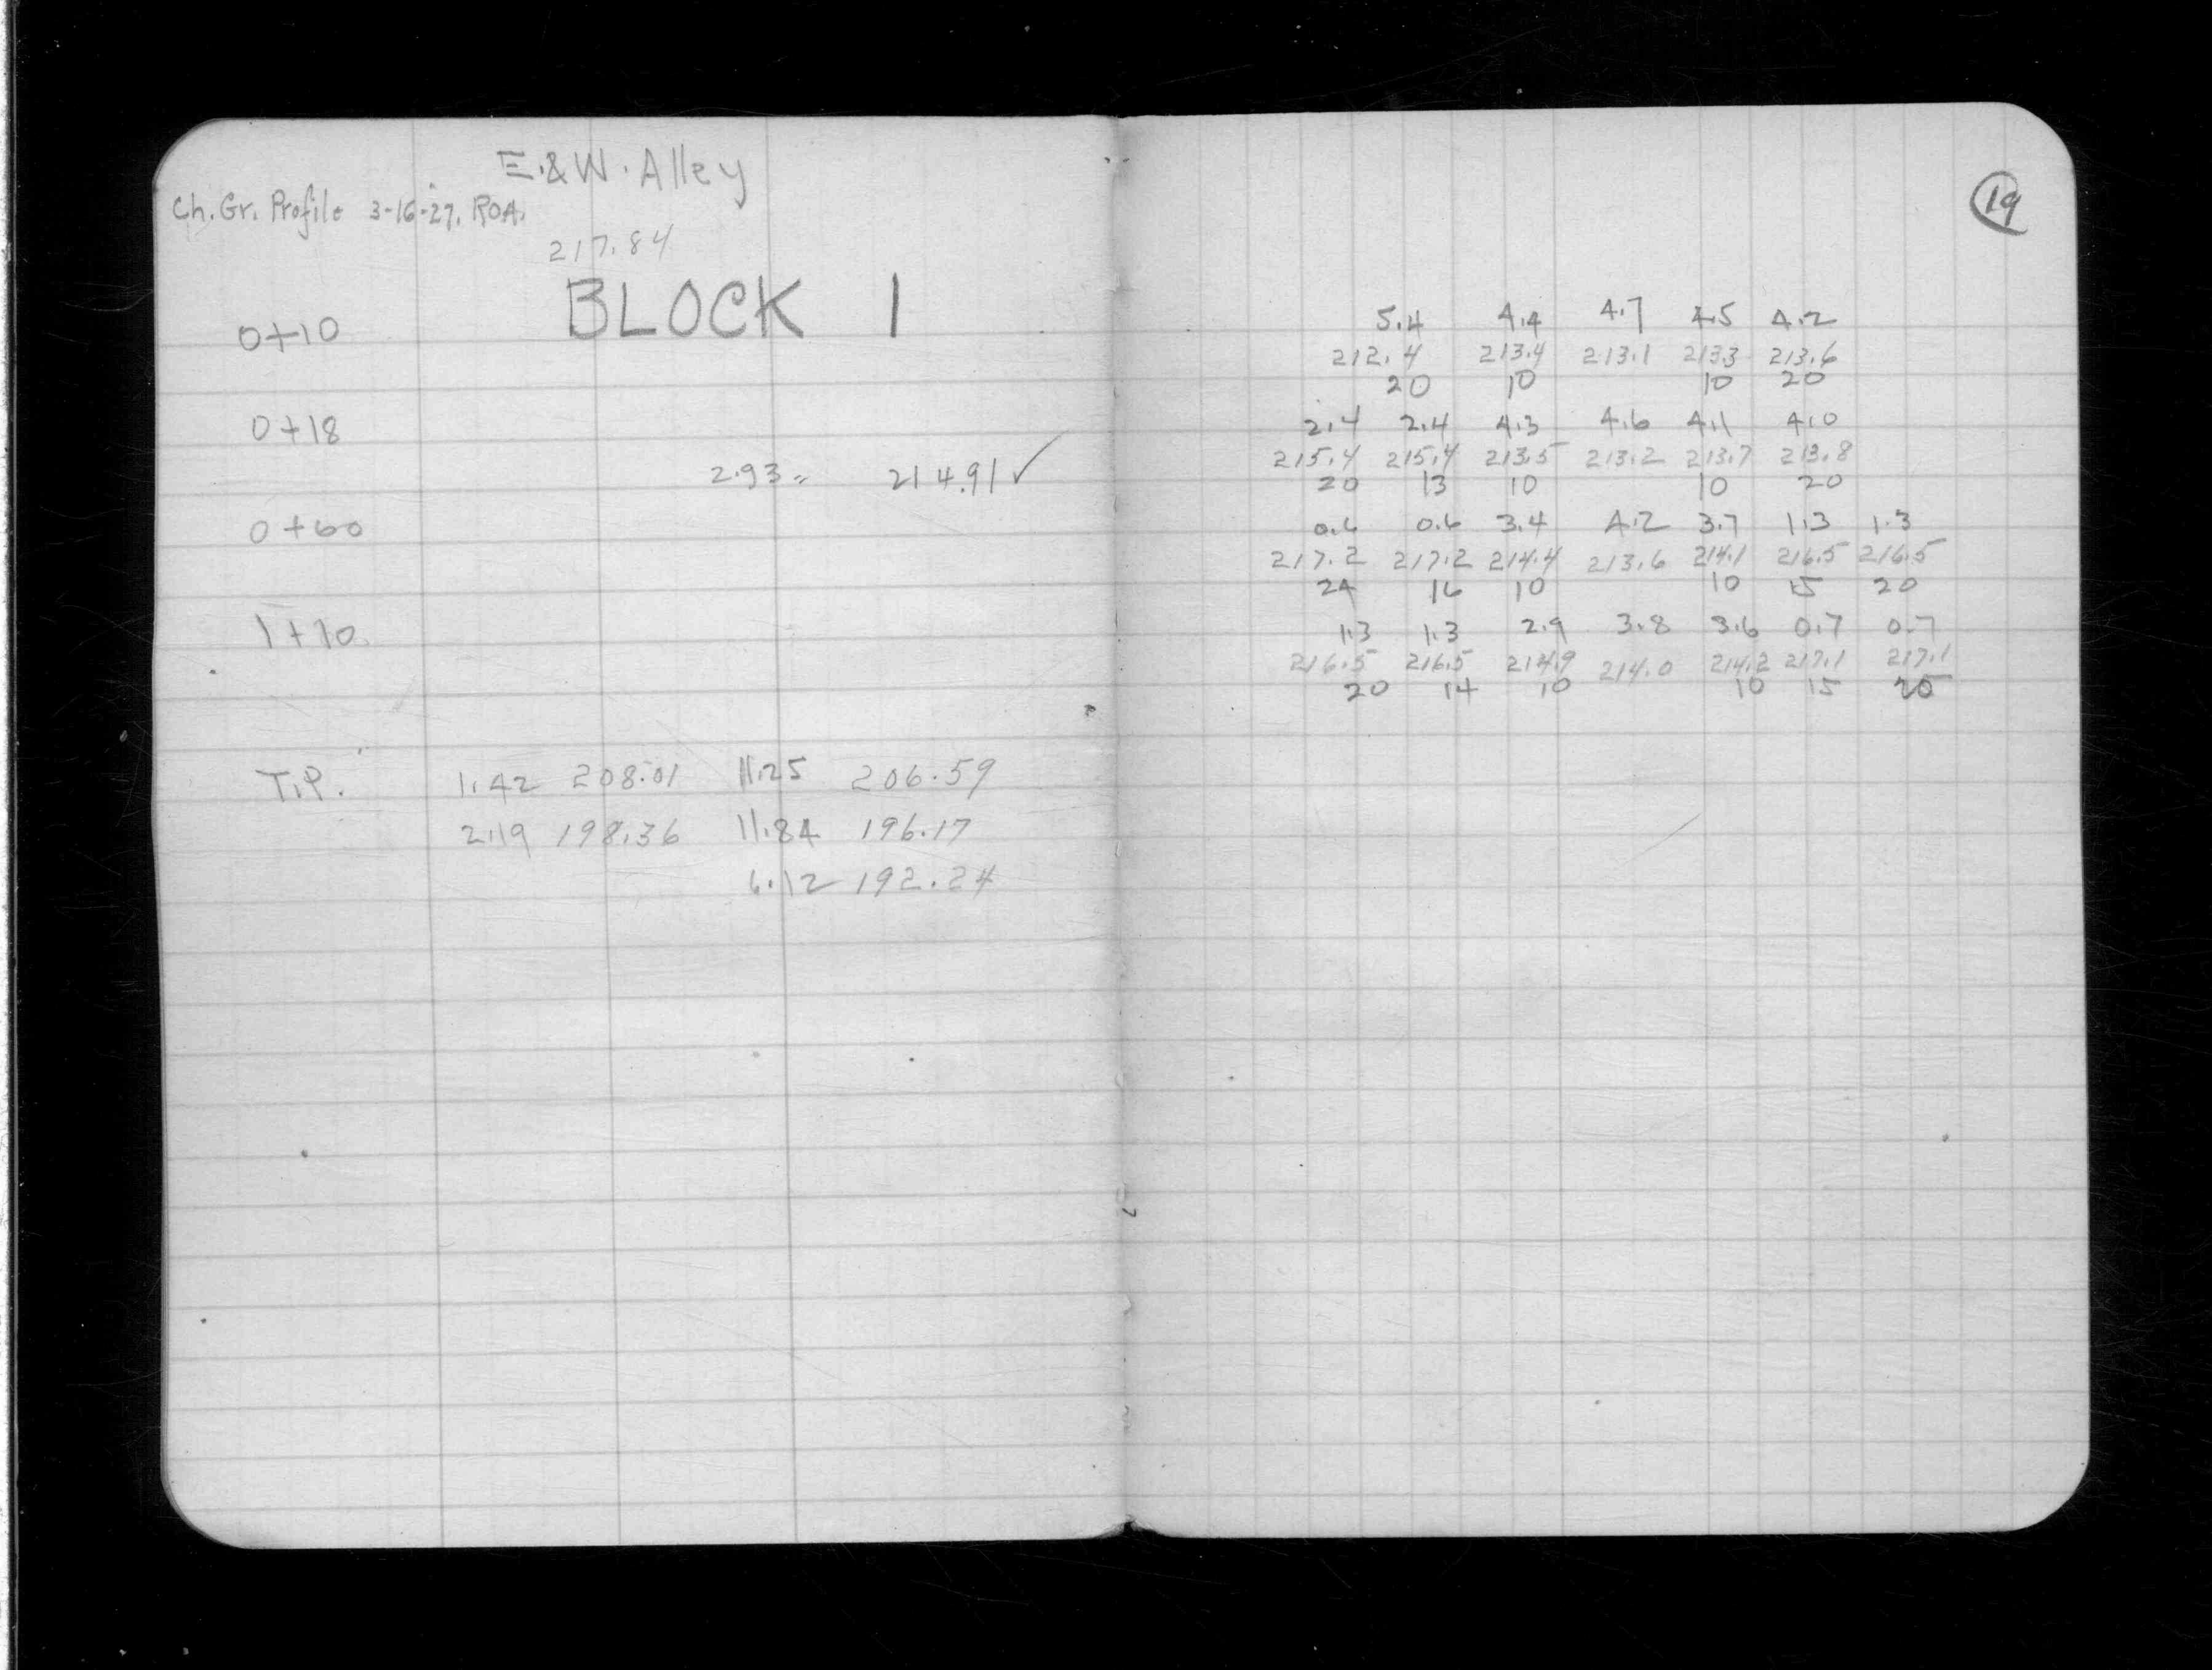 E. & W. Alley
Ch. Gr. Profile 3-16-27. ROA.
217.84
BLOCK 1
0+10
0+18
2.93 = 214.91 ✓
0+60
1+10
T.P. 1.42 208.01 11.25 206.59
2.19 198.36 11.84 196.17
6.12 192.24
19
5.4 4.4 4.7 4.5 4.2
212.4 213.4 213.1 213.3 213.6
20 10 10 20
2.4 2.4 4.3 4.6 4.1 4.0
215.4 215.4 213.5 213.2 213.7 213.8
20 13 10 10 20
0.6 0.6 3.4 4.2 3.7 1.3 1.3
217.2 217.2 214.4 213.6 214.1 216.5 216.5
24 16 10 10 15 20
1.3 1.3 2.9 3.8 3.6 0.7 0.7
216.5 216.5 214.9 214.0 214.2 217.1 217.1
20 14 10 10 15